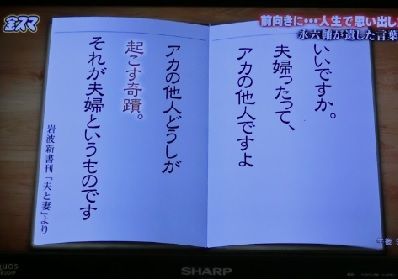 金スマ
前向きに…人生で思い出し
永六輔が遺した言葉
いいですか。
夫婦ったって、
アカの他人ですよ
アカの他人どうしが
起こす奇蹟。
それが夫婦というものです
岩波新書刊「夫と妻」より
SHARP